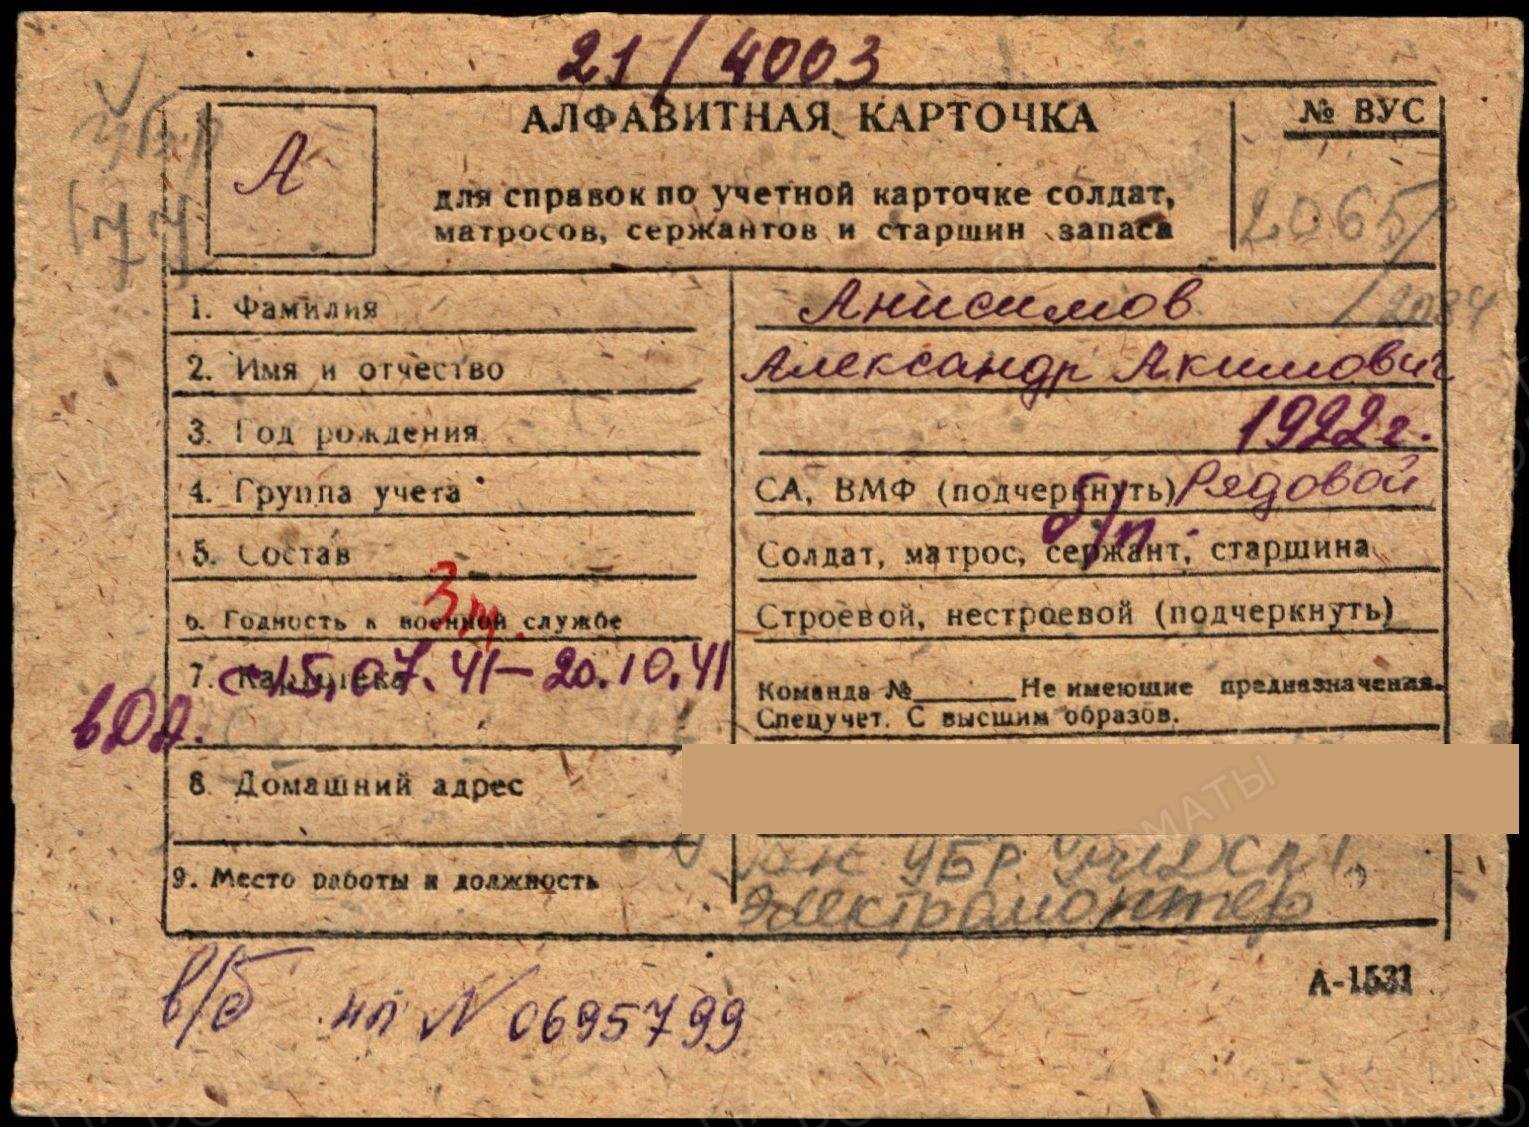 21/4003
АЛФАВИТНАЯ КАРТОЧКА
№ ВУС
А
для справок по учетной карточке солдат,
матросов, сержантов и старшин запаса
177
2065/
/2034
1. Фамилия Анисимов
2. Имя и отчество Александр Акимович
3. Год рождения 1922г.
4. Группа учета СА, ВМФ (подчеркнуть) Рядовой
б/п.
5. Состав Солдат, матрос, сержант, старшина
3т.
6. Годность к военной службе Строевой, нестроевой (подчеркнуть)
7. Картотека Команда № Не имеющие предназначения.
с 15.07.41 – 20.10.41
Спецучет. С высшим образов.
8. Домашний адрес
9. Место работы и должность УБР
Электромонтер
в/б нп № 0695799
А-1531